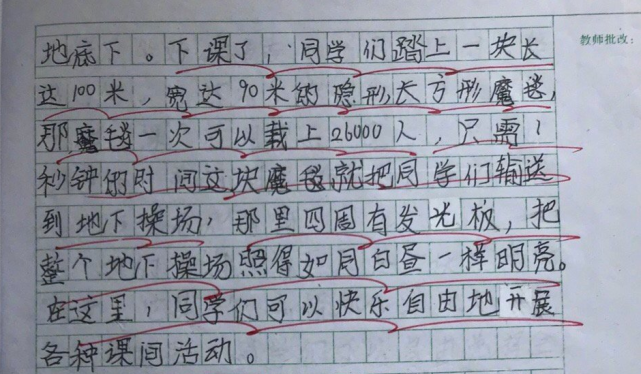 教师批改：
地底下。下课了，同学们踏上一块长
达100米，宽达90米的隐形长方形魔毯，
那魔毯一次可以载上26000人，只需1
秒钟的时间这块魔毯就把同学们输送
到地下操场，那里四周有发光板，把
整个地下操场照得如同白昼一样明亮。
在这里，同学们可以快乐自由地开展
各种课间活动。